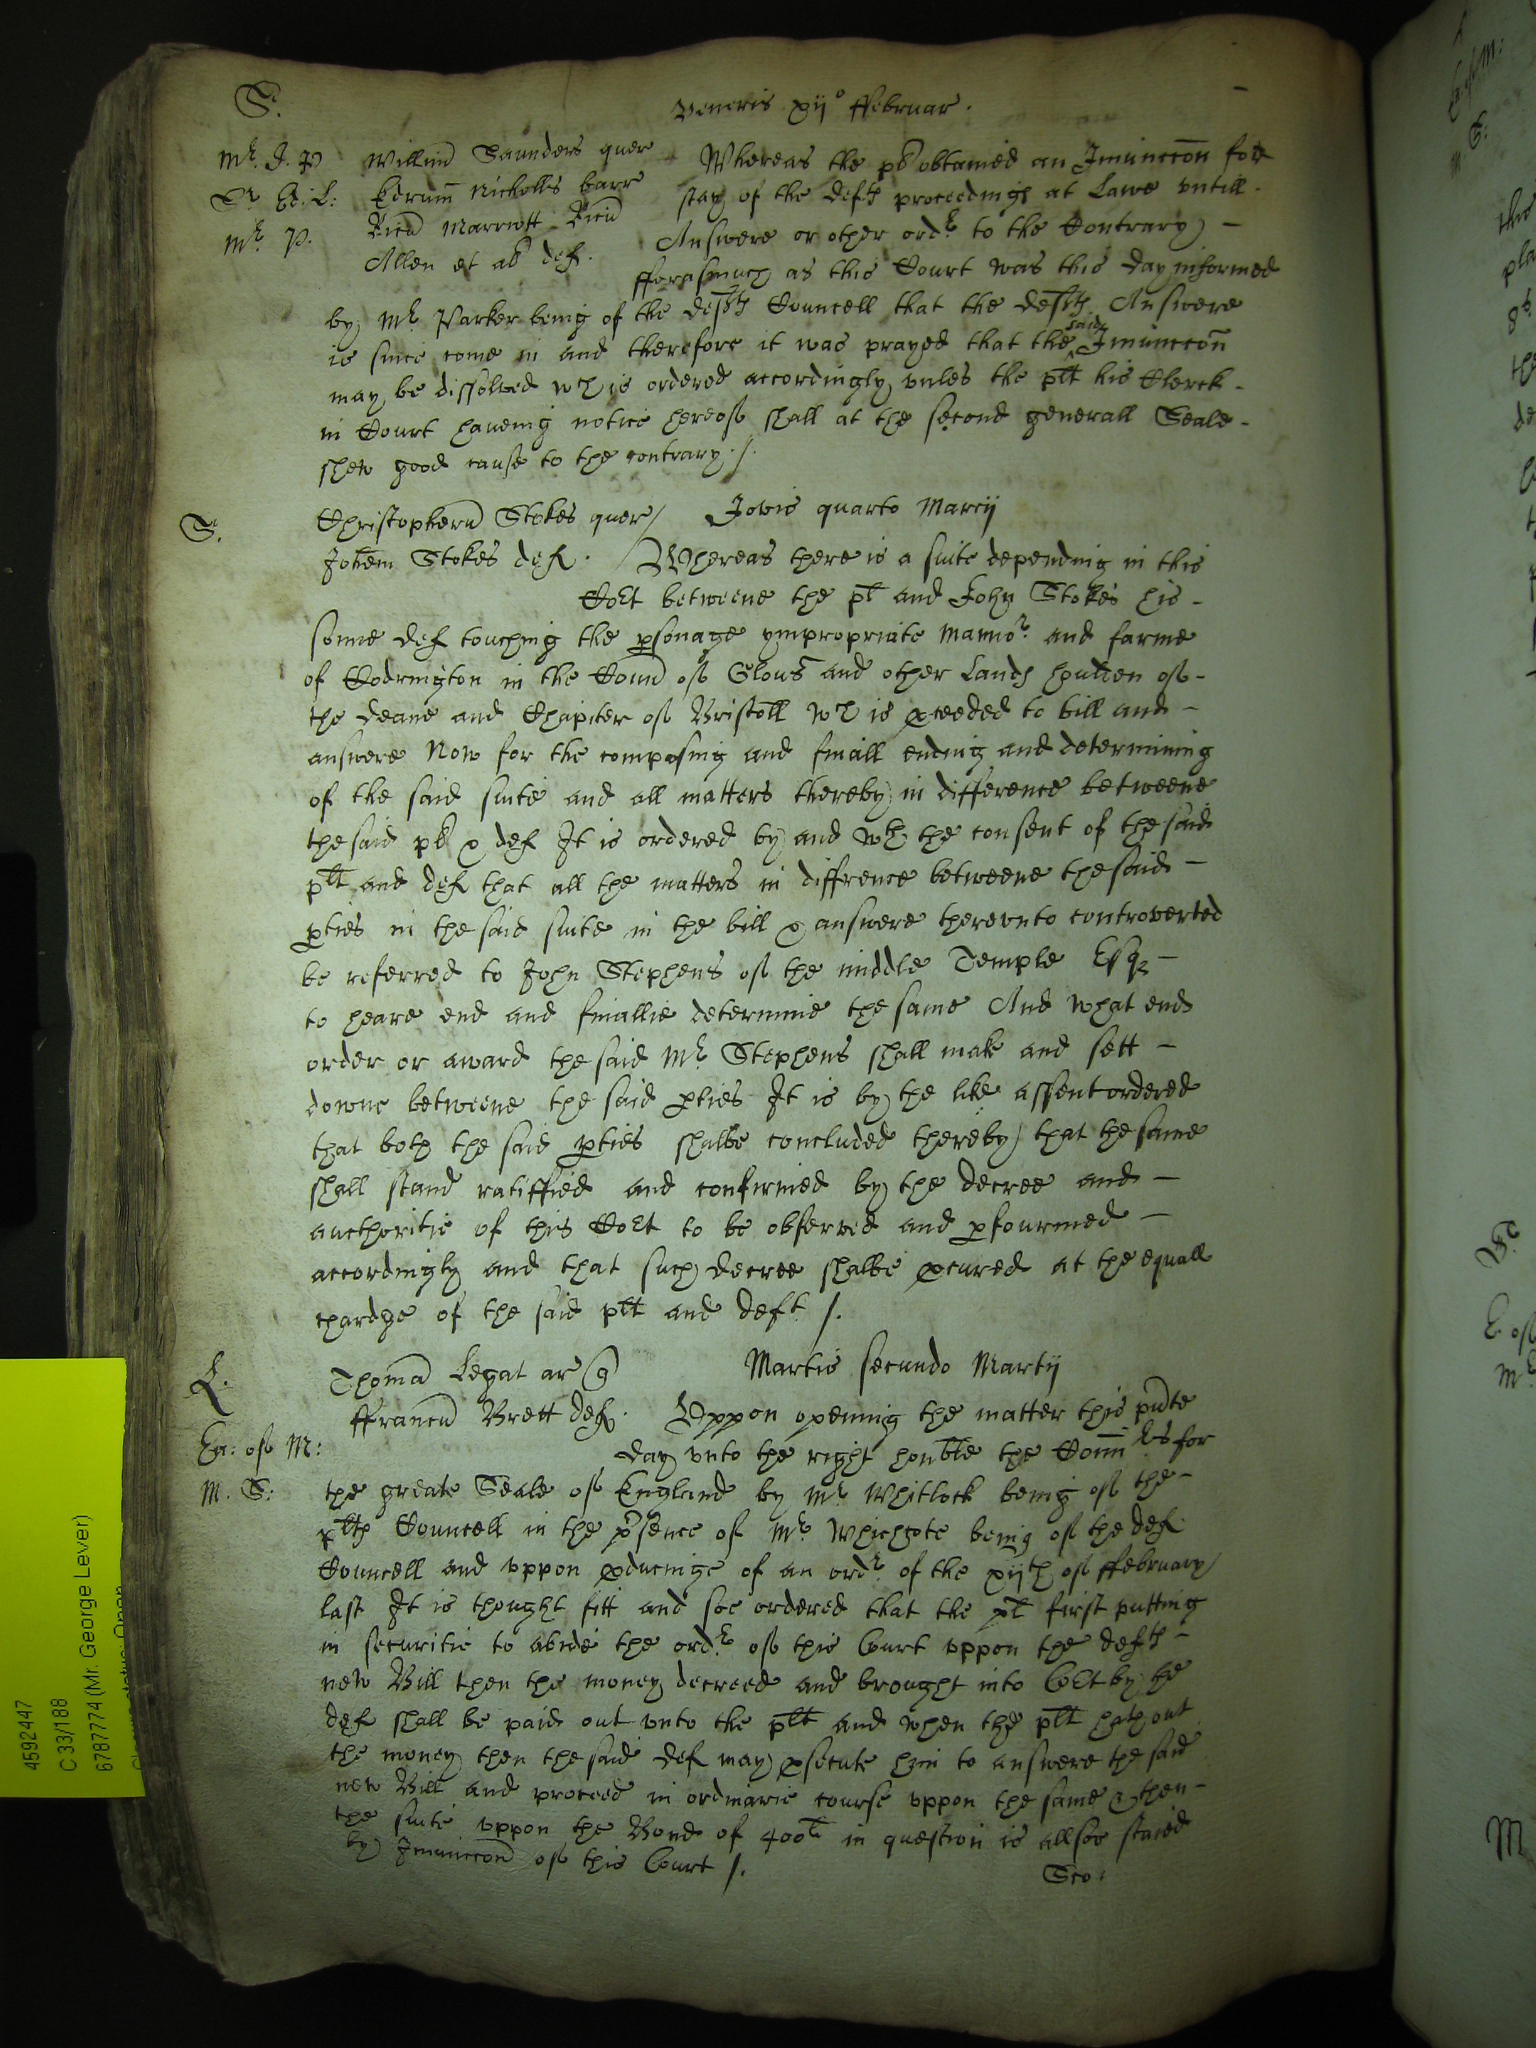 S.
Veneris xijº ffebruar.
Mr. J. P
Willm Saunders quer
Whereas the pl obtained an Iniunccon for
stay of the defts proceedings at Lawe vntill
Nicholls barr
Ricu Marriott Ricu
Mr. P.
Answere or other ordr to the Contrary
Allen et al def.
fforasmuch as this Court was this day informed
by Mr Parker being of the defts Councell that the defts Answere
is since come in and therefore it was prayed that the said Iniunccon
may be dissolved wch is ordered accordingly vnles the plt his Clerck
in Court haueing notice hereof shall at the second generall Seale
shew good cause to the contrary ./.
S.
Christopherum Stokes quer
Jovis quarto Marcij
Johem Stokes def.
Whereas there is a suite depending in this
Cort betweene the pl and John Stokes his
sonne def touching the psonage ympropriate mannor and farme
of Codrington in the Coun of Glouc and other Lands houlden of
the Deane and Chapiter of Bristoll wch is pceeded to bill and
answere Now for the composing and finall ending and determining
of the said suite and all matters thereby in difference betweene
the said pl & def It is ordered by and wth the consent of the said
plt and def that all the matters in diffrence betweene the said
pties in the said suite in the bill & answere therevnto controverted
be referred to John Stephens of the middle Temple Esqr
to heare end and finallie determine the same And what end
order or award the said Mr Stephens shall make and sett
downe betweene the said pties It is by the like assent ordered
that both the said pties shalbe concluded thereby that the same
shall stand ratiffied and confirmed by the decree and
aucthoritie of this Cort to be observed and pfourmed
accordingly and that such decree shalbe pcured at the equall
chardge of the said plt and deft ./.
L.
Thoma Legat ar q
Martis secundo Martij
ffranciu Brett def.
Vppon opening the matter this pnte
Ea: of M:
day vnto the right honble the Comrs for
M. S:
the greate Seale of England by Mr Whitlock being of the
plts Councell in the psence of Mr Whichcote being of the def
Councell and vppon pduceinge of an ordr of the xijth of ffebruary
last It is thought fitt and soe ordered that the pl first putting
in securitie to abide the ordr of this Court vppon the defts
new Bill then the money decreed and brought into Cort by the
def shall be paid out vnto the plt and when the plt hath out
the money then the said def may psecute him to answere the said
new Bill and proceed in ordinarie course vppon the same & then
the suite vppon the Bond of 400l in question is allsoe staied
by Iniunccon of this Court ./.
Sco:
4592447
C 33/188
6787774 (Mr. George Lever)